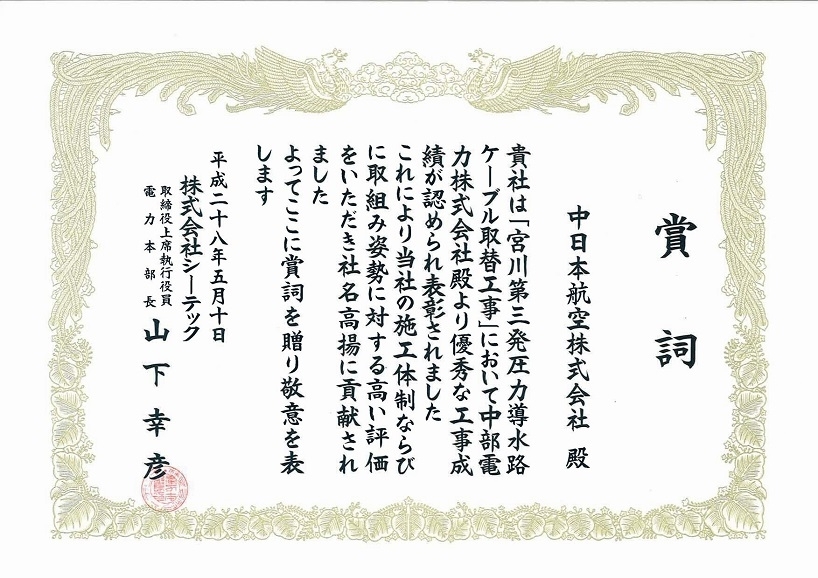 賞詞
中日本航空株式会社 殿
貴社は「宮川第三発圧力導水路
ケーブル取替工事」において中部電
力株式会社殿より優秀な工事成
績が認められ表彰されました
これにより当社の施工体制ならび
に取組み姿勢に対する高い評価
をいただき社名高揚に貢献され
ました
よってここに賞詞を贈り敬意を表
します
平成二十八年五月十日
株式会社シーテック
取締役上席執行役員
電力本部長
山下幸彦